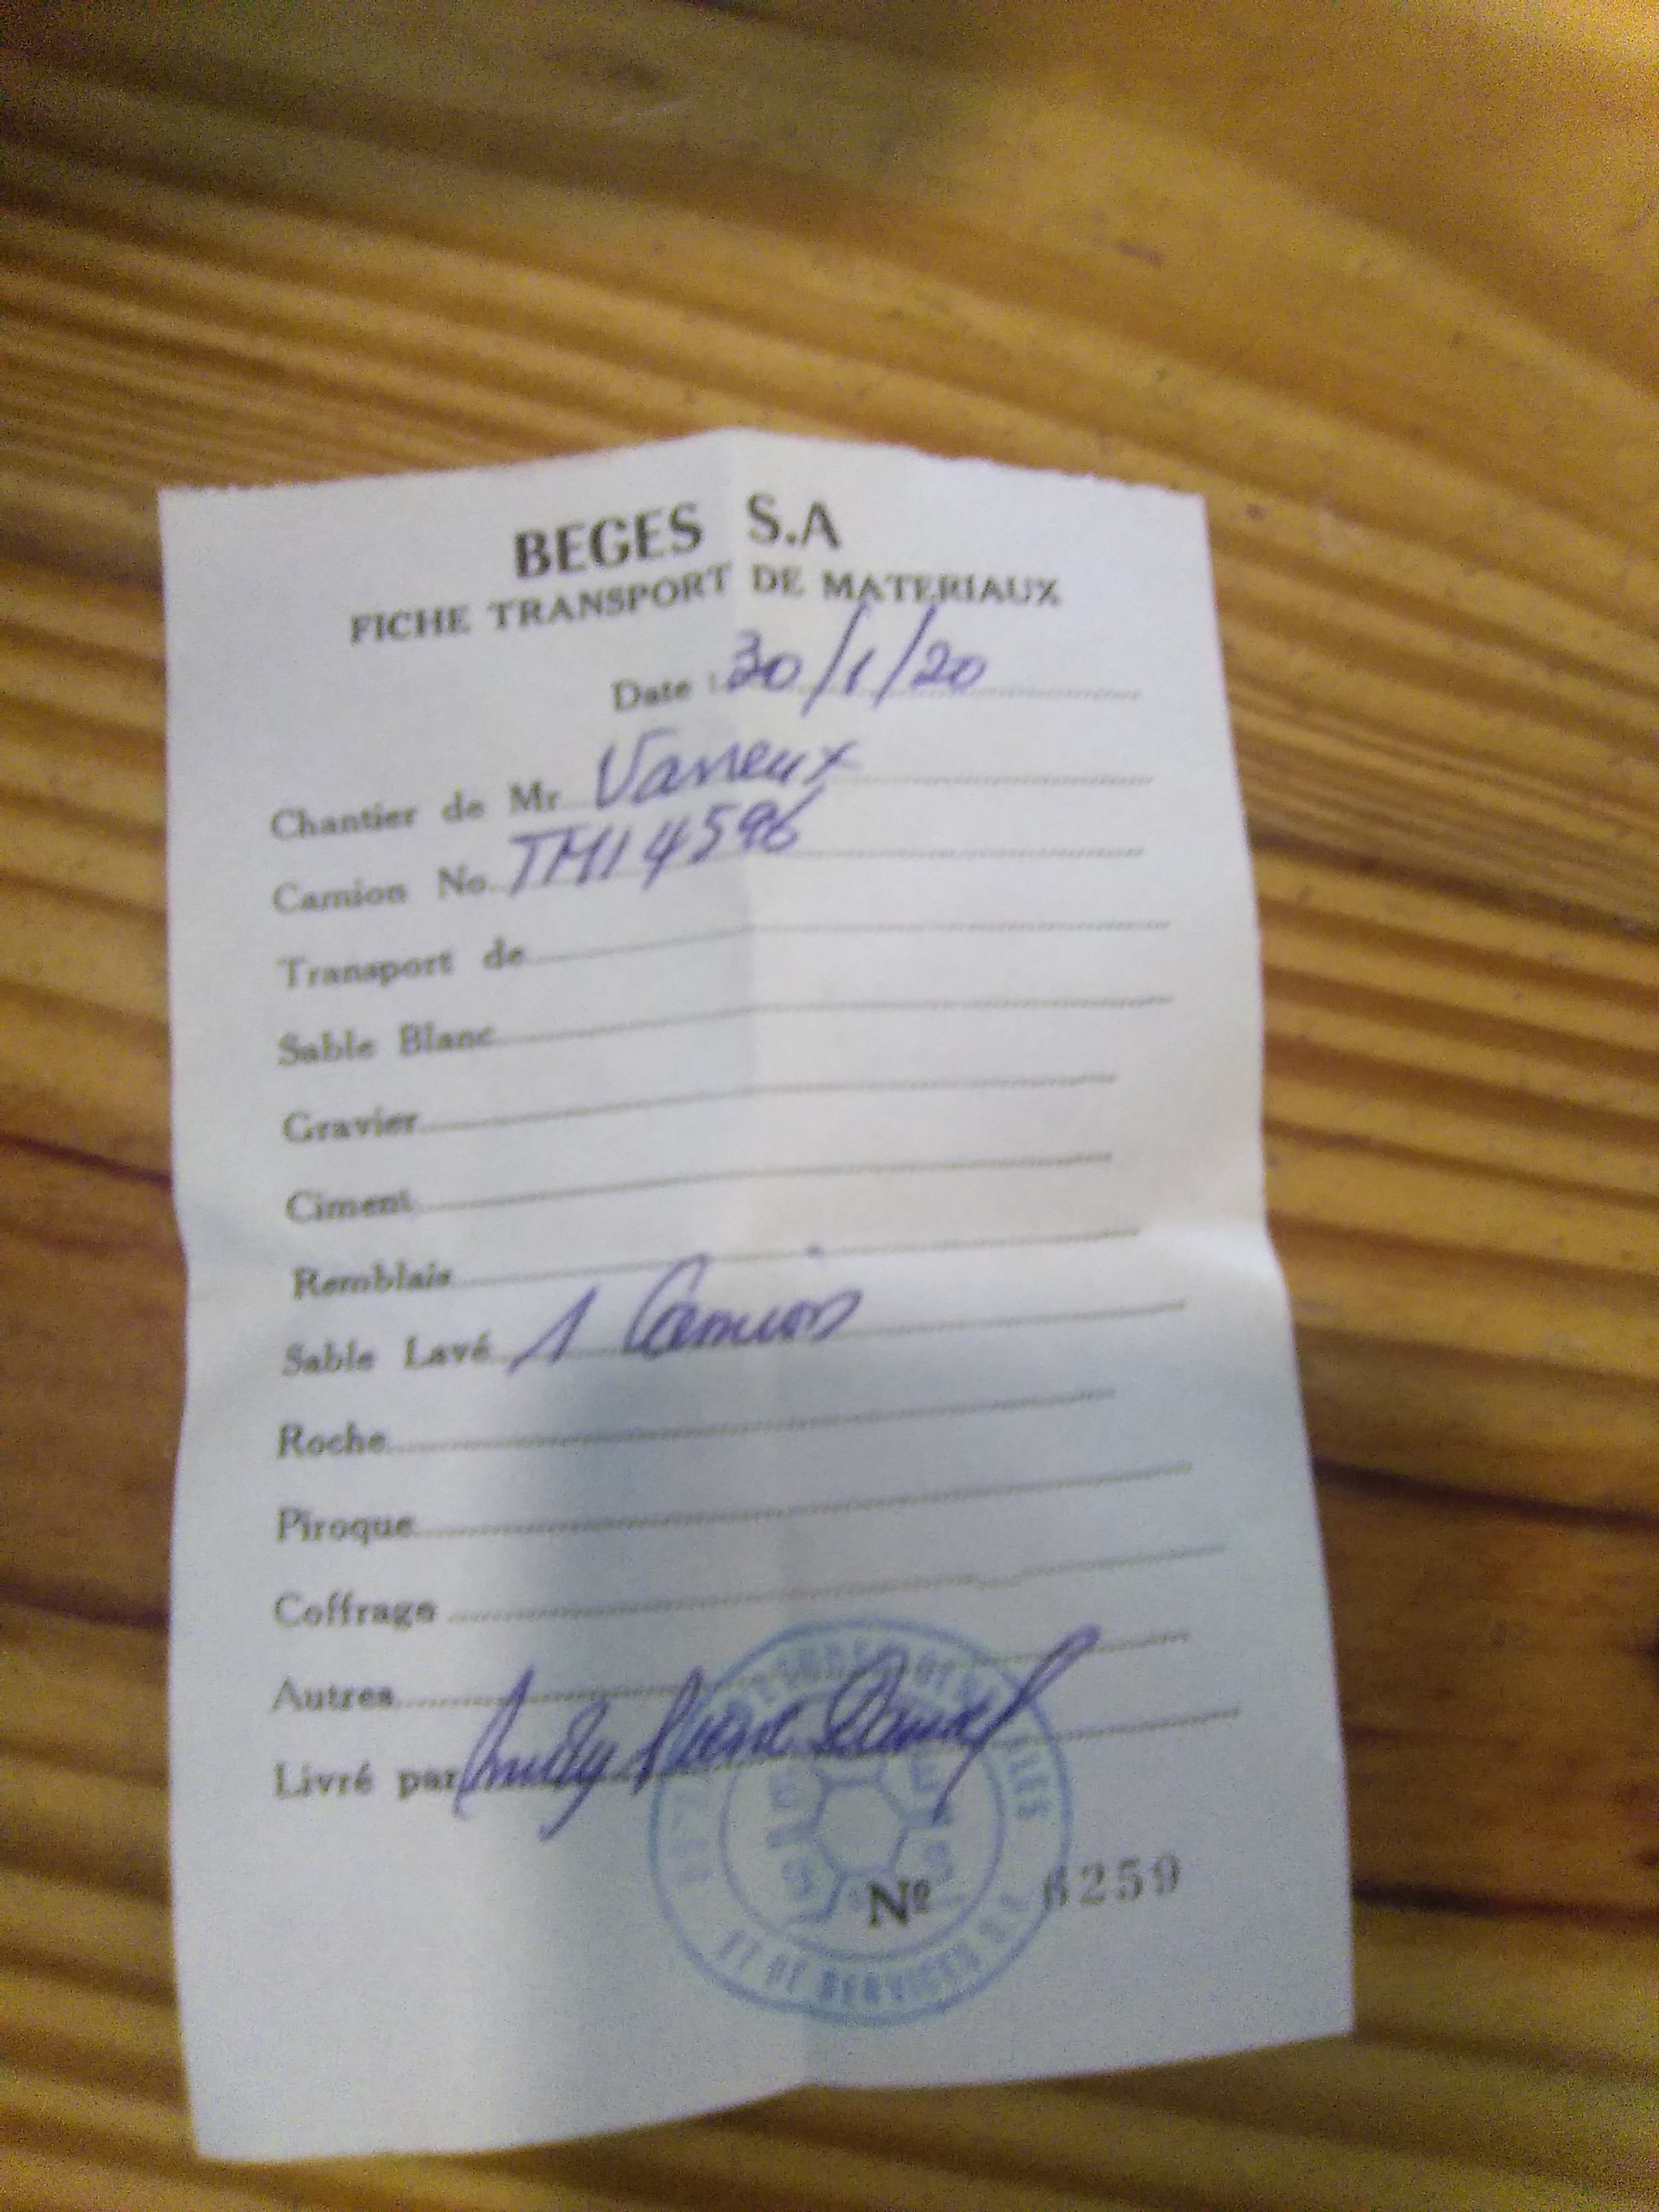 BEGES S.A
FICHE TRANSPORT DE MATERIAUX
Date : 30/1/20
Chantier de Mr Varreux
Camion No. TM14596
Transport de
Sable Blanc
Gravier
Ciment
Remblais
Sable Lavé 1 Camion
Roche
Piroque
Coffrage
Autres
Livré par
ET DE SERVICES S.A
Nº 6259